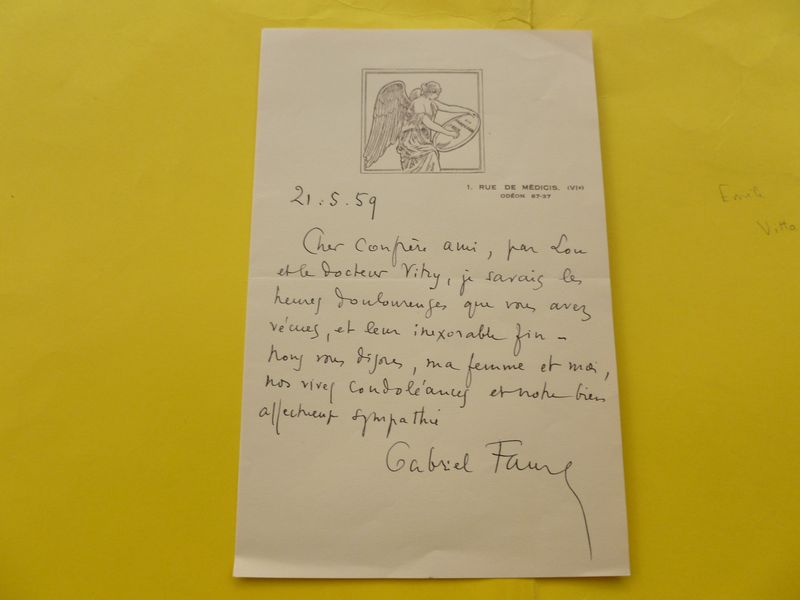 1. RUE DE MÉDICIS. (VIe)
ODÉON 87-37
21.5.59
Cher Confrère ami, par Lou
et le docteur Vitry, je savais les
heures douloureuses que vous avez
vécues, et leur inexorable fin –
Nous vous disons, ma femme et moi,
nos vives condoléances et notre bien
affectueuse sympathie
Gabriel Faure
Emile
Vitta